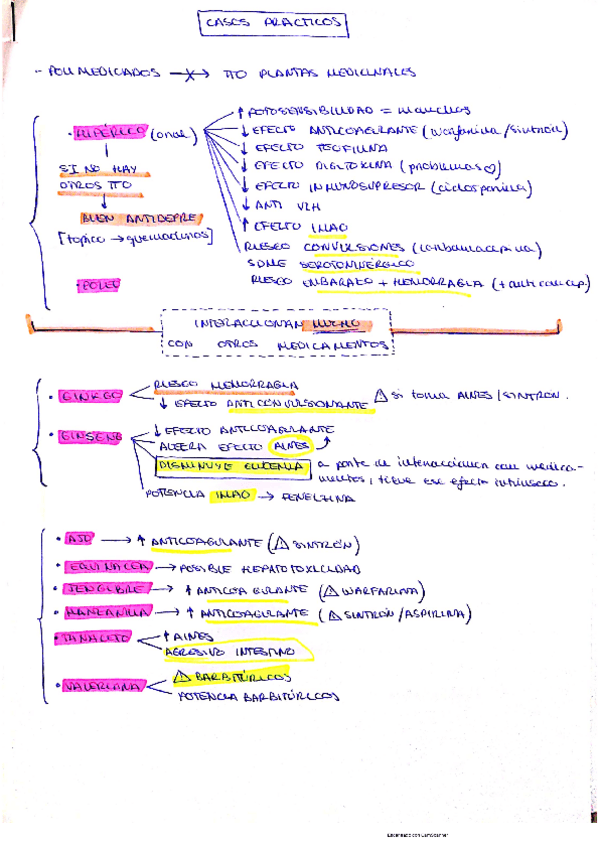 CASOS PRACTICOS
- POLIMEDICADOS —x→ TTO PLANTAS MEDICINALES
· HIPÉRICO (oral)
SI NO HAY
OTROS TTO
↓
BUEN ANTIDEPRE
[tópico → quemaduras]
↑ FOTOSENSIBILIDAD = manchas
↓ EFECTO ANTICOAGULANTE (warfarina/sintrón)
↓ EFECTO TEOFILINA
↓ EFECTO DIGITOXINA (problemas ♡)
↓ EFECTO INMUNOSUPRESOR (ciclosporina)
↓ ANTI VIH
↑ EFECTO IMAO
RIESGO CONVULSIONES (carbamacepina)
SDME SEROTONINÉRGICO
RIESGO EMBARAZO + HEMORRAGIA (+ anticoncep.)
· POLEO
INTERACCIONAN MUCHO
CON OTROS MEDICAMENTOS
· GINKGO
RIESGO HEMORRAGIA
↓ EFECTO ANTICONVULSIONANTE
⚠ si toma AINES/SINTRÓN.
· GINSENG
↓ EFECTO ANTICOAGULANTE
ALTERA EFECTO AINES ↑
DISMINUYE GLUCEMIA a parte de interaccionar con medica-
mentos, tiene ese efecto intrínseco.
POTENCIA IMAO → FENELZINA
· AJO → ↑ ANTICOAGULANTE (⚠ SINTRÓN)
· EQUINACEA → POSIBLE HEPATOTOXICIDAD
· JENGIBRE → ↑ ANTICOAGULANTE (⚠ WARFARINA)
· MANZANILLA → ↑ ANTICOAGULANTE (⚠ SINTRÓN/ASPIRINA)
· TANACETO
↑ AINES
AGRESIVO INTESTINO
· VALERIANA
⚠ BARBITÚRICOS
POTENCIA BARBITÚRICOS
Escaneado con CamScanner